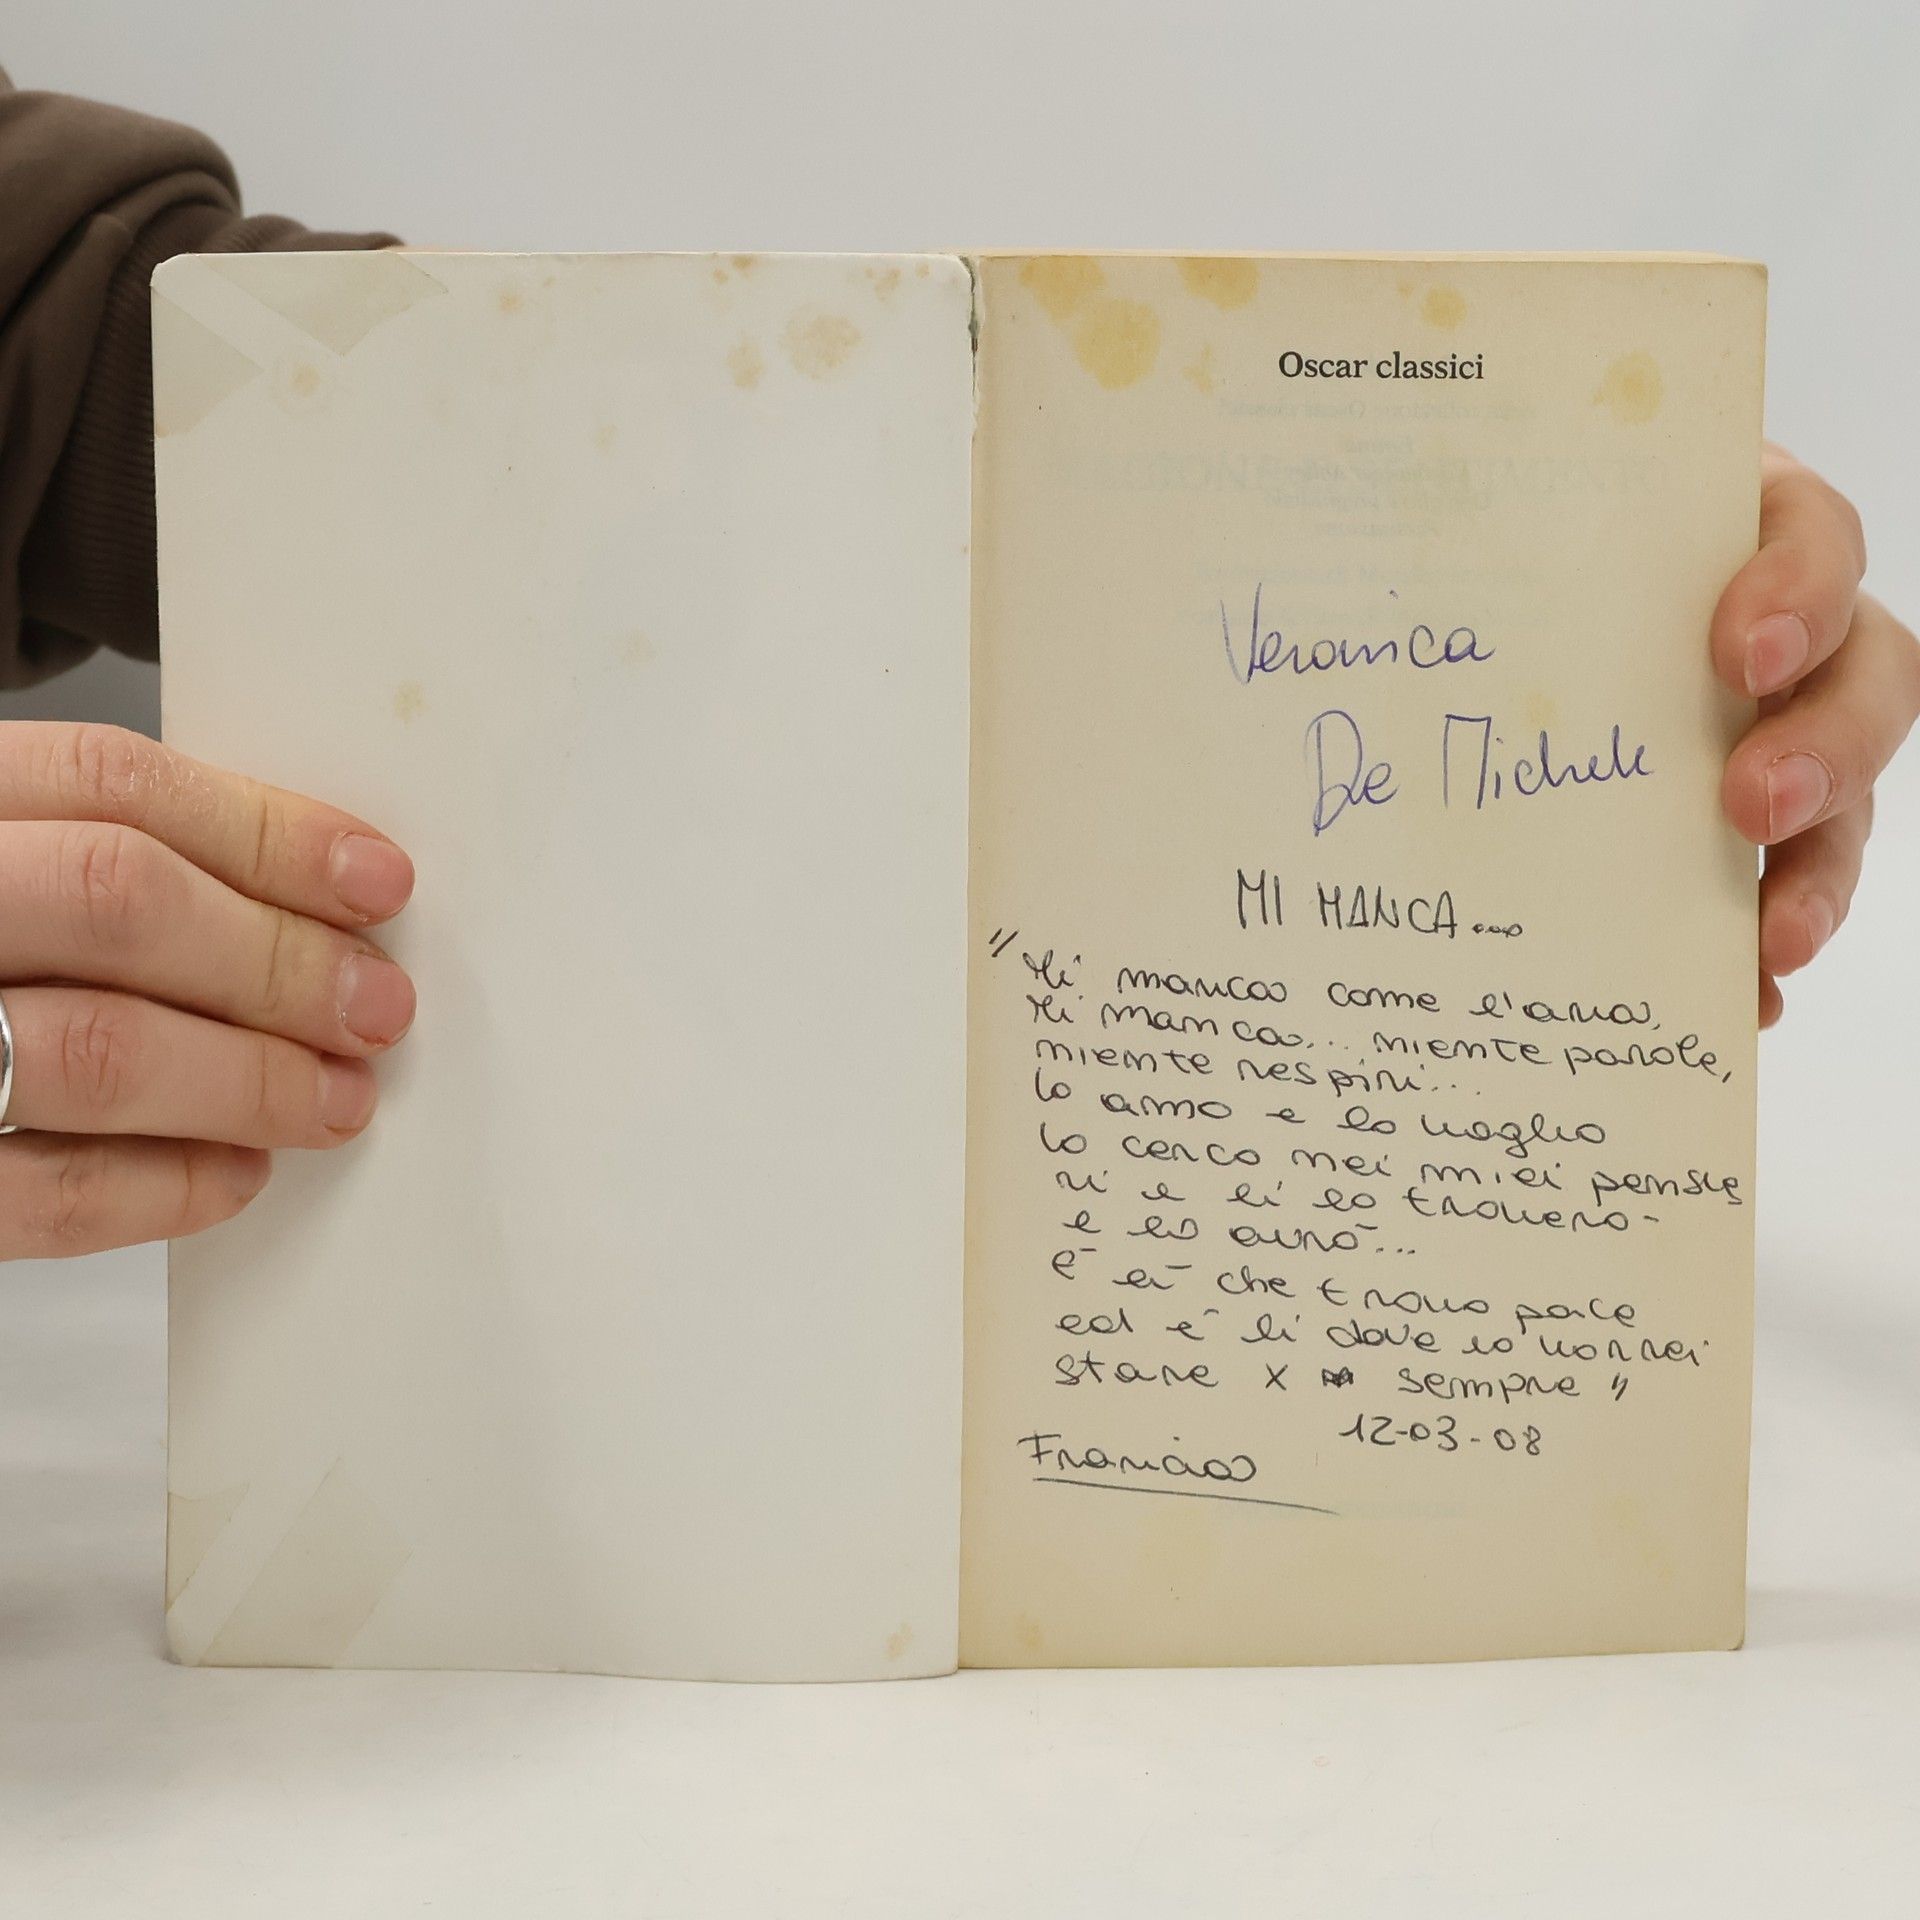 Oscar classici
Veronica
De Michele
MI MANCA....
"Mi manca come l'aria,
Mi manca... niente parole,
niente respiri...
lo amo e lo voglio
lo cerco nei miei pensie
ri e lì lo troverò-
e lo avrò...
È lì che trovo pace
ed è lì dove io vorrei
stare x sempre"
12-03-08